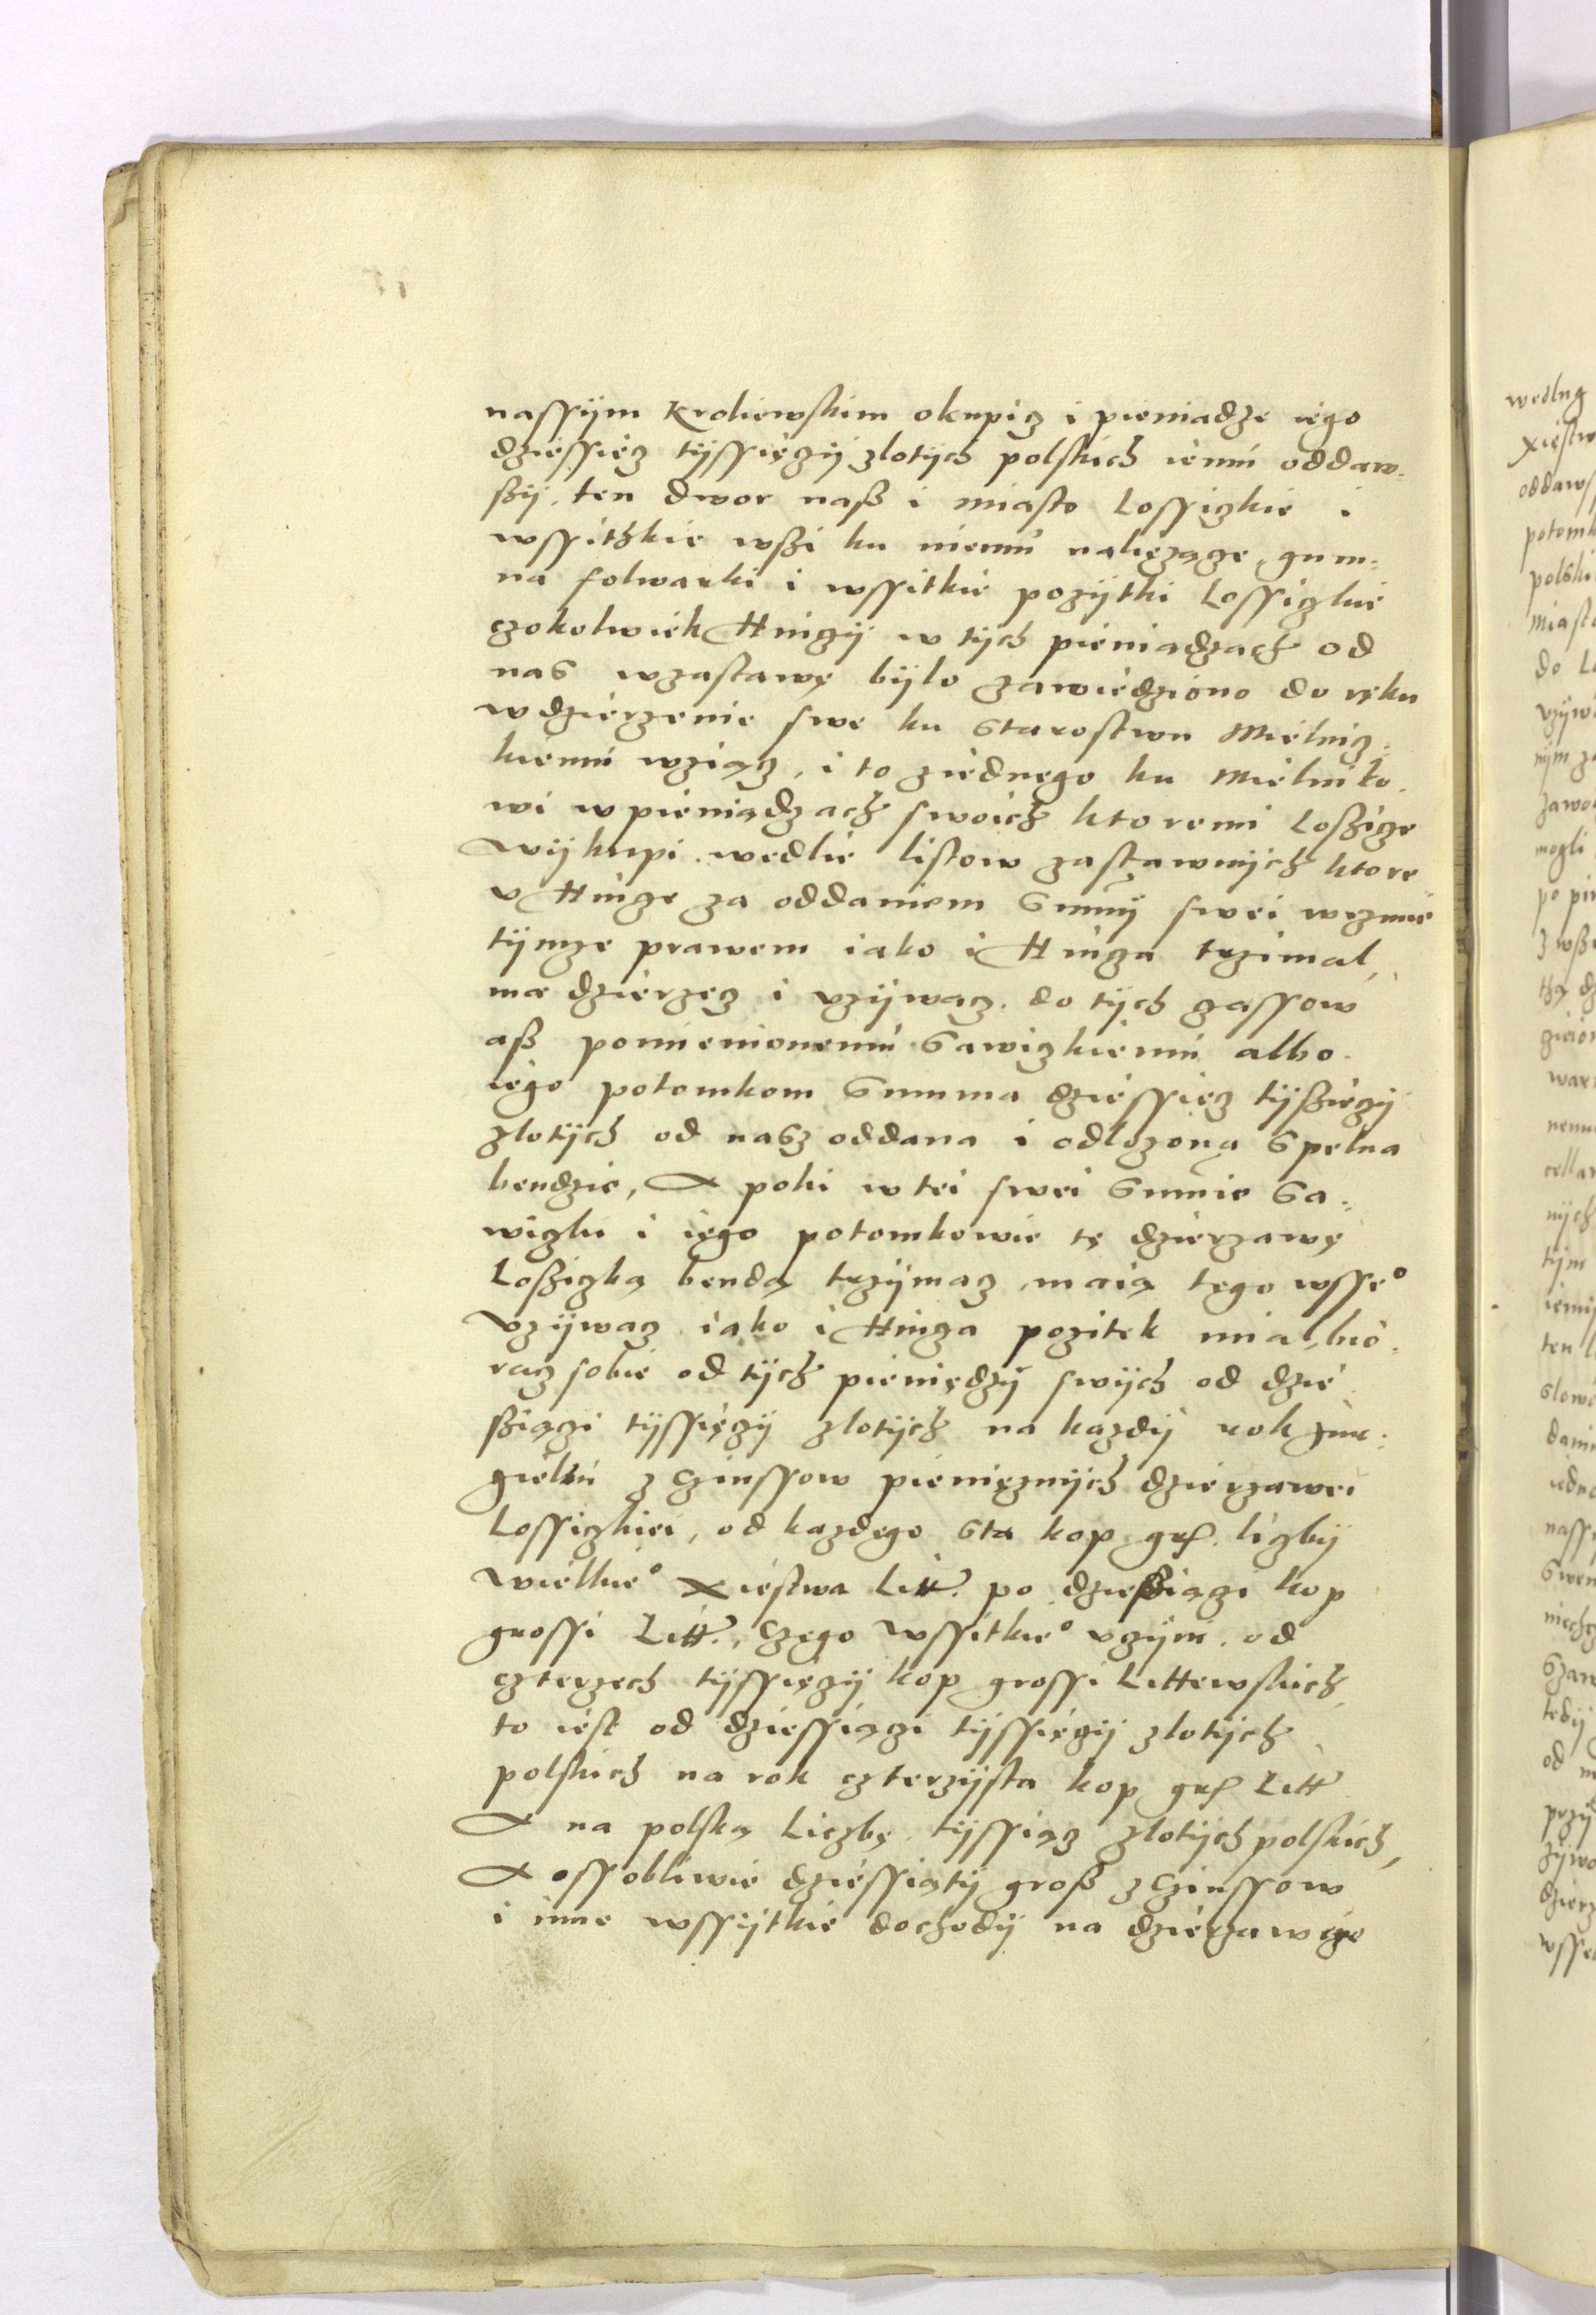 nassÿm Kroliewskim okupicz i pieniadze iego
dziessięcz tÿssięczÿ zlotÿch polskich iemú oddaw=
szÿ, ten dwor nasz i miasto Lossiczkie i
wssitzkie wszi ku niemú należącze, gum=
na folwarki i wssitkie pozÿtki Lossiczkie
czokolwiek Hinczÿ w tÿch pieniądzach od
nas wzastawę bÿlo zawiedziono do ręku
w dzierzenie swe ku Starostwu Mielnicz=
kiemú wziącz, i to ziednego ku Mielniko=
wi w pieniądzach swoich ktoremi Loszicze
wÿkupi wedlie listow zastawnÿch ktore
v Hincze za oddaniem Summÿ swei wezmie
tÿmze prawem iako i Hincza trzimal,
ma dzierzecz i vzÿwacz do tÿch czassow
asz pomienionemú Sawiczkiemú albo
iego potomkom Summa dziessięcz tÿszięczÿ
zlotÿch od nasz oddana i odlozona Spelna
bendzie, A poki w tei swei Summie Sa=
wiczki i iego potomkowie tę dzierzawę
Losziczką bendą trzÿmacz maią tego wsse°
vzÿwacz iako i Hincza pozitek mial, bio=
racz sobie od tÿch pieniędzÿ swÿch od dzie
sziączi tÿssięczÿ zlotÿch na kazdÿ rok Jur=
gieltú z Czinssow pieniężnÿch dzierzawei
Lossiczkiei, od kazdego sta kop grs. liczbÿ
wielkie° Xiestwa Litt. po dziesziączi kop
grossi Litt., Czego wssitkie° vczÿni od
czterzech tÿssięczÿ kop grossi Littewskich
to iest od dziessiączi tÿssięczÿ zlotÿch
polskich na rok czterzÿsta kop grs Litt
A na polską Liczbę tÿssiącz zlotÿch polskich,
A ossobliwie dziessiątÿ grosz z Czinssow
i inne wssÿtkie dochodÿ na dzierzawcze